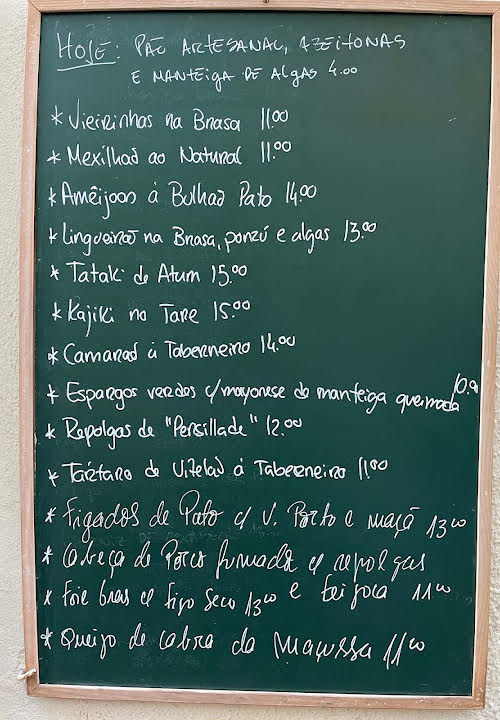 HOJE: PÃO ARTESANAL, AZEITONAS
E MANTEIGA DE ALGAS 4.00
* Vieirinhas na Brasa 11.00
* Mexilhão ao Natural 11.00
* Amêijoas à Bulhão Pato 14.00
* Lingueirão na Brasa, ponzú e algas 13.00
* Tataki de Atum 15.00
* Kajiki no Tare 15.00
* Camarão à Taberneiro 14.00
* Espargos verdes c/mayonese de manteiga queimada 10.00
* Repolgas de "Persillade" 12.00
* Tártaro de Vitelão à Taberneiro 11.00
* Figados de Pato c/ V. Porto e maçã 13 00
* Cabeça de Porco fumada c/ repolgas
e feijoca 11 00
* Foie bras c/ figo seco 13 00
* Queijo de cabra da Maçussa 11 00